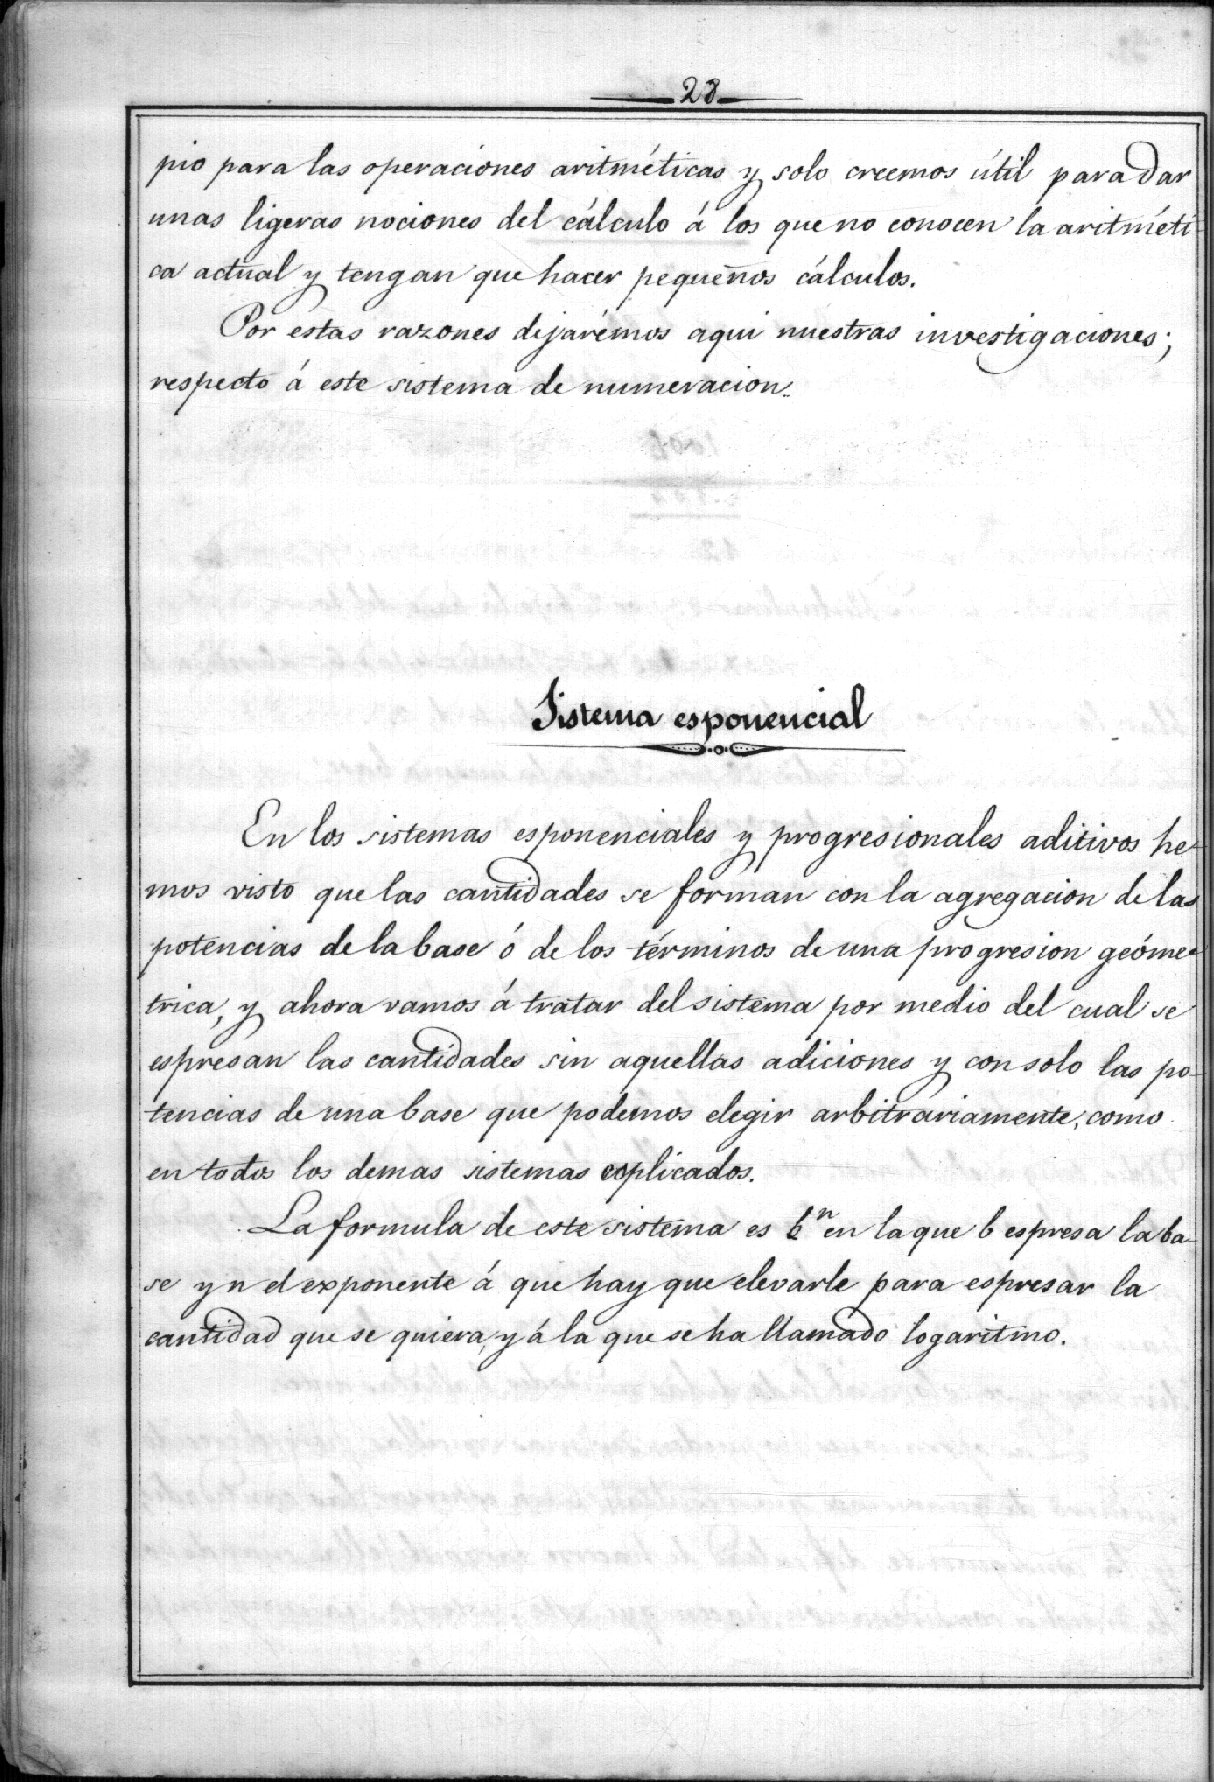 28
pio para las operaciones aritméticas y solo creemos útil para dar
unas ligeras nociones del cálculo á los que no conocen la aritméti-
ca actual y tengan que hacer pequeños cálculos.
Por estas razones dejarémos aqui nuestras investigaciones;
respecto á este sistema de numeracion.
Sistema esponencial
En los sistemas esponenciales y progresionales aditivos he-
mos visto que las cantidades se forman con la agregacion de las
potencias de la base ó de los términos de una progresion geóme-
trica, y ahora vamos á tratar del sistema por medio del cual se
espresan las cantidades sin aquellas adiciones y con solo las po-
tencias de una base que podemos elegir arbitrariamente, como
en todos los demas sistemas esplicados.
La formula de este sistema es bⁿ en la que b espresa la ba-
se y n el exponente á que hay que elevarle para espresar la
cantidad que se quiera, y á la que se ha llamado logaritmo.